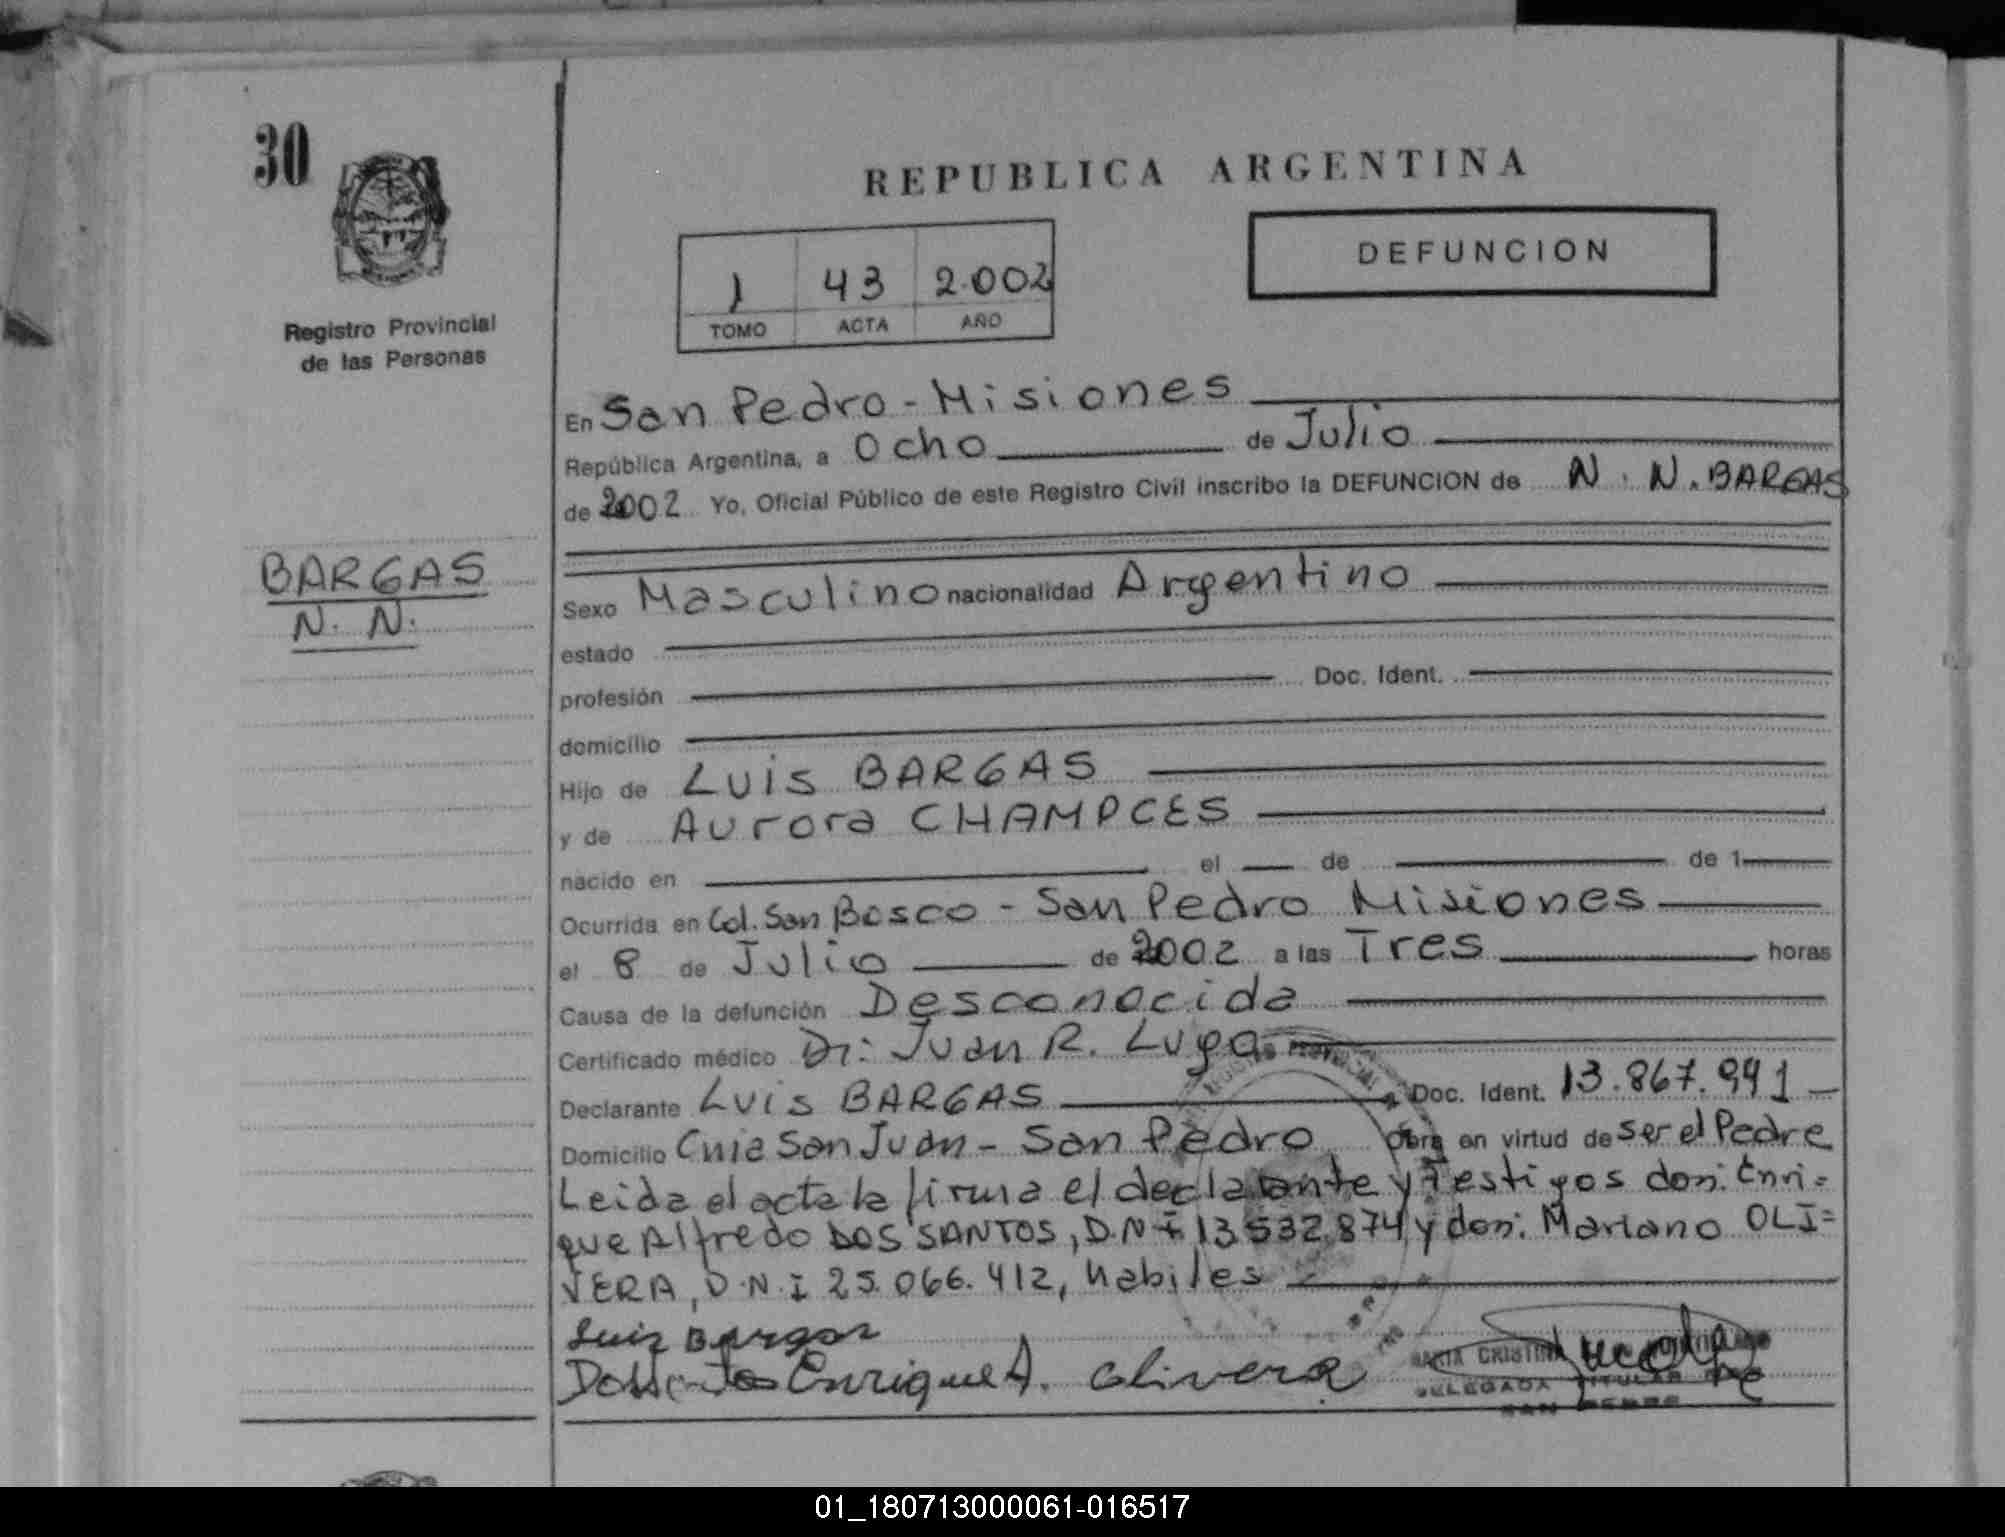 30
REPUBLICA ARGENTINA
DEFUNCION
1 43 2.002
TOMO ACTA AÑO
Registro Provincial
de las Personas
En San Pedro - Misiones
República Argentina, a Ocho de Julio
de 2002 Yo, Oficial Público de este Registro Civil inscribo la DEFUNCION de N. N. BARGAS
BARGAS
N. N.
Sexo Masculino nacionalidad Argentino
estado
profesión Doc. Ident.
domicilio
Hijo de Luis BARGAS
y de Aurora CHAMPCES
nacido en el de de 1
Ocurrida en Col. San Bosco - San Pedro Misiones
el 8 de Julio de 2002 a las Tres horas
Causa de la defunción Desconocida
Certificado médico Dr: Juan R. Lugo
Declarante Luis BARGAS Doc. Ident. 13.867.941
Domicilio Cnia San Juan - San Pedro Obra en virtud de ser el Padre
Leida el acta la firma el declarante y Testigos don: Enri=
que Alfredo DOS SANTOS, D.N.I. 13.532.874 y don: Mariano OLI=
VERA, D.N.I 25.066.412, habiles
Luis Bargas
Enrique A. Olivera
MARIA CRISTINA
DELEGADA TITULAR
SAN PEDRO
01_180713000061-016517